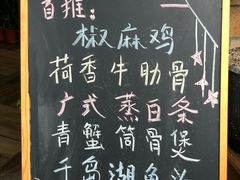 首推:
椒麻鸡
荷香牛肋骨
广式蒸白条
青蟹筒骨煲
千岛湖鱼头